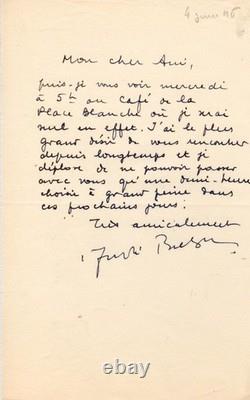 4 juin
Mon cher Ami,
puis-je vous voir mercredi
à 5h au Café de la
Place Blanche où je serai
seul en effet. J'ai le plus
grand désir de vous rencontrer
depuis longtemps et je
déplore de ne pouvoir passer
avec vous qu'une demi-heure
choisie à grand peine dans
ces prochains jours.
Très amicalement
André Breton
ebay